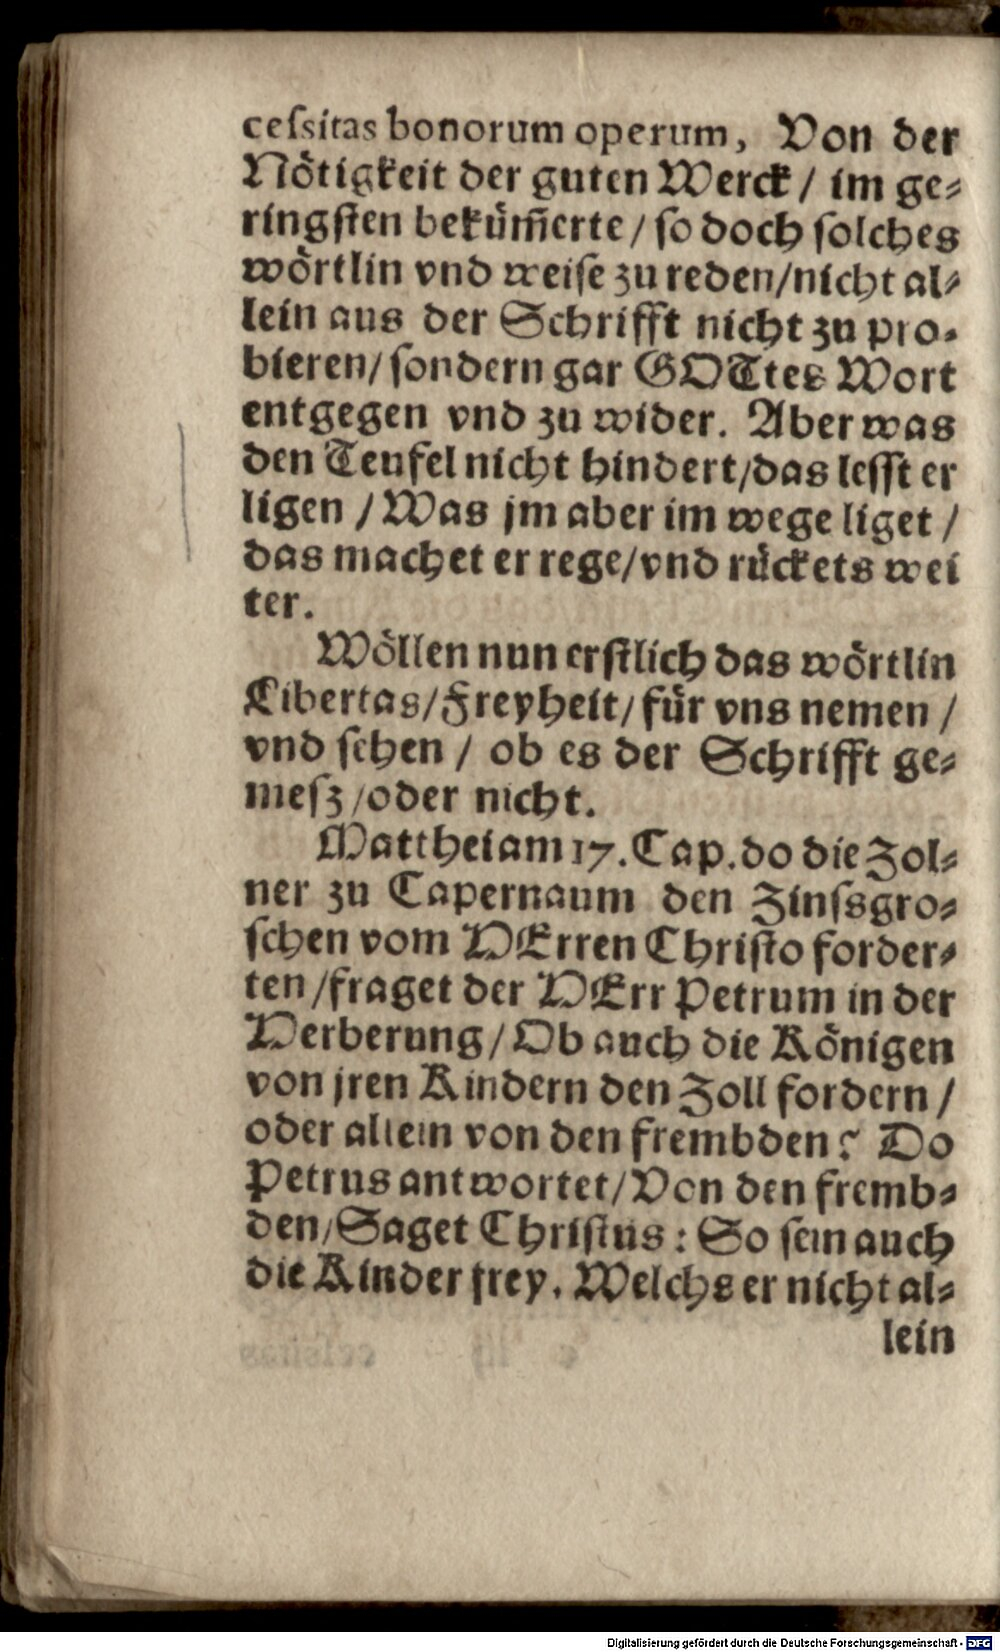 ceſsitas bonorum operum, Von der
Nötigkeit der guten Werck / im ge⸗
ringſten bekům̃erte / ſo doch ſolches
wörtlin vnd weiſe zu reden/nicht al⸗
lein aus der Schrifft nicht zu pro⸗
bieren/ ſondern gar GOTtes Wort
entgegen vnd zu wider. Aber was
den Teufel nicht hindert/das leſſt er
ligen / Was jm aber im wege liget /
das machet er rege/vnd růckets wei
ter.
Wöllen nun erſtlich das wörtlin
Libertas/Freyheit/ für vns nemen /
vnd ſehen / ob es der Schrifft ge⸗
meſz /oder nicht.
Matthei am 17. Cap. do die Zol⸗
ner zu Capernaum den Zinſsgro⸗
ſchen vom HErren Chriſto forder⸗
ten /fraget der HErr Petrum in der
Herberung/ Ob auch die Königen
von jren Kindern den Zoll fordern /
oder allein von den frembden? Do
Petrus antwortet/Von den fremb⸗
den/Saget Chriſtus: So ſein auch
die Kinder frey. Welchs er nicht al⸗
lein
Digitalisierung gefördert durch die Deutsche Forschungsgemeinschaft - DFG